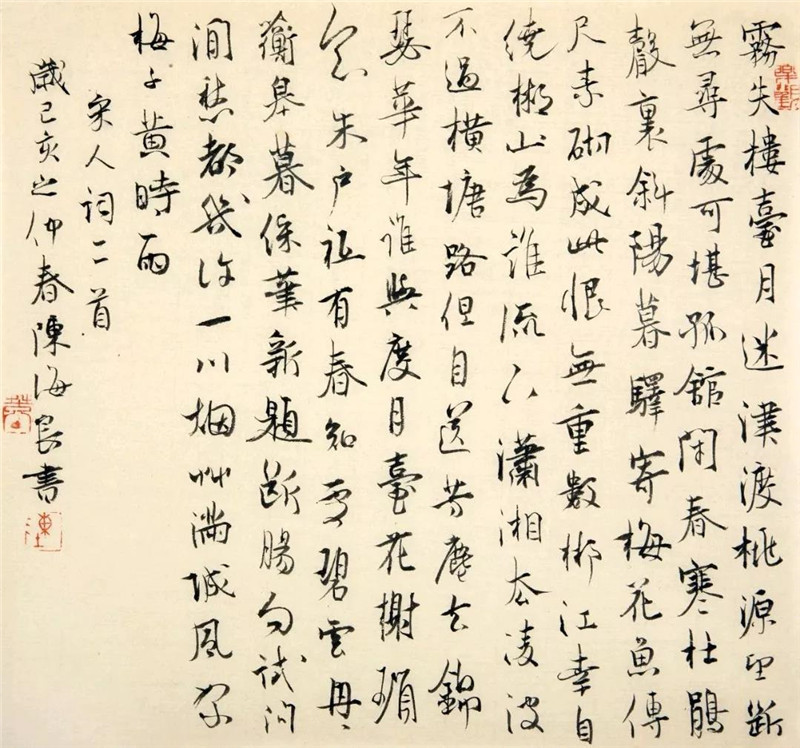 霧失樓臺月迷津渡桃源望斷
無尋處可堪孤館閉春寒杜鵑
聲裏斜陽暮驛寄梅花魚傳
尺素砌成此恨無重數郴江幸自
繞郴山爲誰流下瀟湘去凌波
不過橫塘路但目送芳塵去錦
瑟華年誰與度月臺花榭瑣
窗朱户祗有春知處碧雲冉冉
蘅皋暮綵筆新題斷腸句試問
閒愁都幾許一川烟艸滿城風絮
梅子黃時雨
宋人詞二首
歲己亥之仲春陳海良書